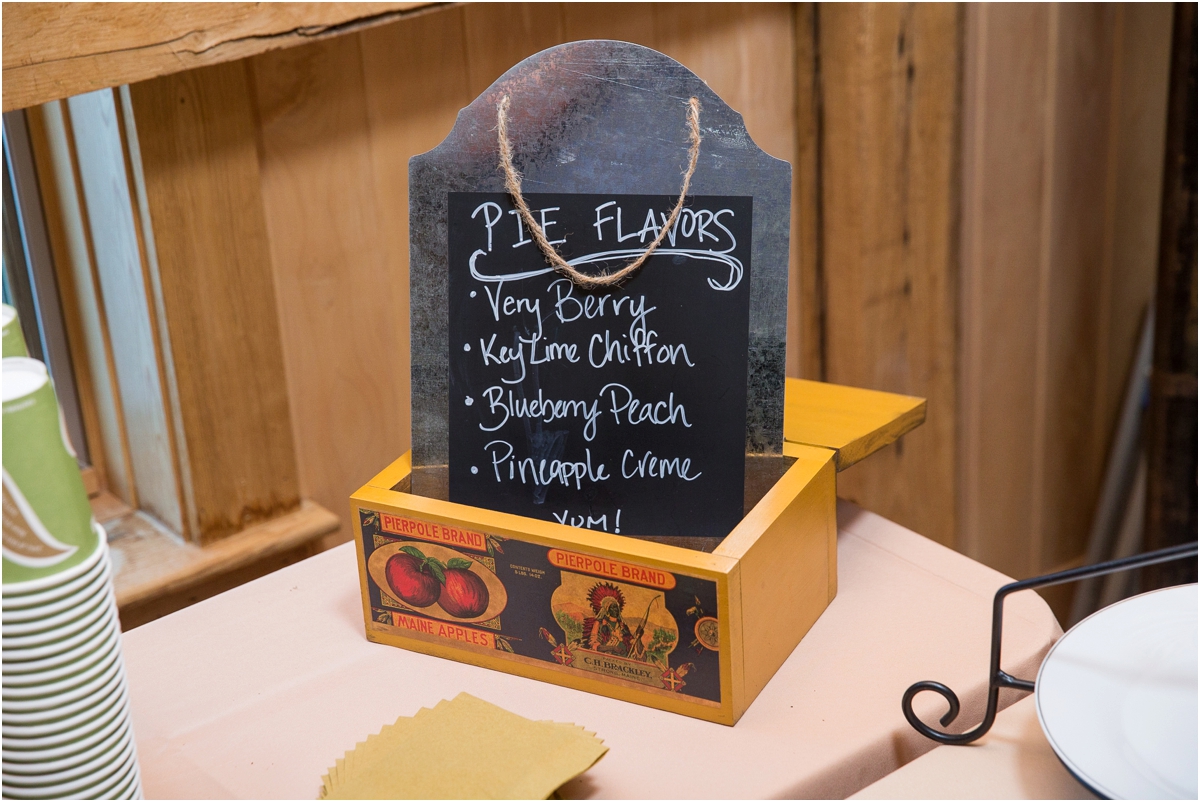 PIE FLAVORS
• Very Berry
• Key Lime Chiffon
• Blueberry Peach
• Pineapple Creme
YUM!
PIERPOLE BRAND
MAINE APPLES
PIERPOLE BRAND
C.H. BRACKLEY,